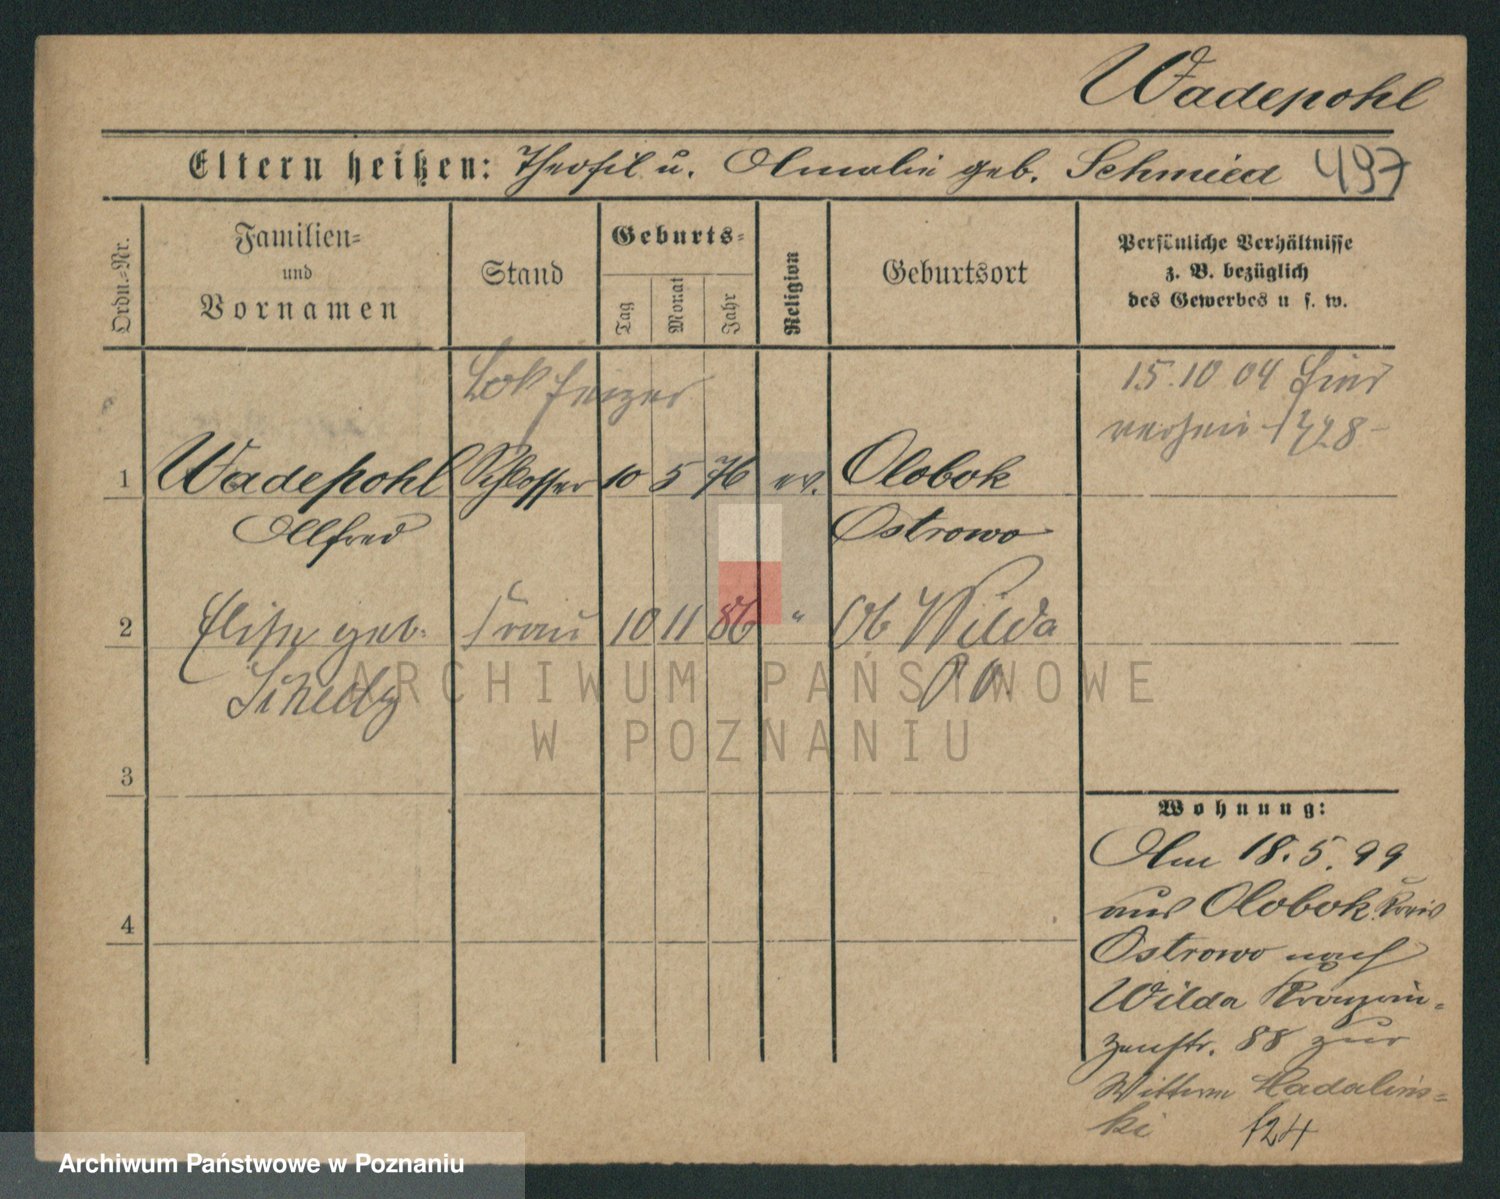 Wadepohl
Eltern heißen: Theofil u. Amalie geb. Schmied 497
Ordn.=Nr.
Familien=
und
Vornamen
Stand
Geburts=
Tag
Monat
Jahr
Religion
Geburtsort
Persönliche Verhältnisse
z. B. bezüglich
des Gewerbes u s. w.
Lok heizer
15.10 04 hier
1728
1 Wadepohl Schlosser 10 5 76 ev. Olobok
Allfred Ostrowo
2 Elise geb. Frau 10 11 86 " Ob Wilda
3
4
Wohnung:
Am 18.5.99
aus Olobok Kreis
Ostrowo nach
Wilda Kronprin-
zenstr. 88 zur
Wittwe Madalins-
ki 124
ARCHIWUM PAŃSTWOWE
W POZNANIU
Archiwum Państwowe w Poznaniu